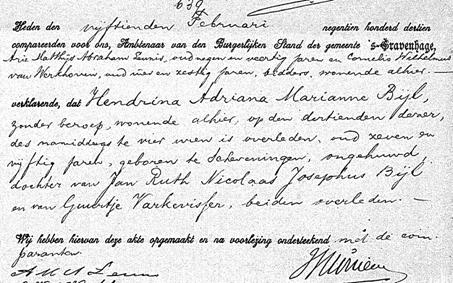 639
Heden den vijftienden Februari negentien honderd dertien
compareerden voor ons, Ambtenaar van den Burgerlijken Stand der gemeente 's-Gravenhage,
Arie Matthijs Abraham Leunis, oud negen en veertig jaren en Cornelis Wilhelmus
van Werkhoven, oud een en zestig jaren, bidders, wonende alhier. —
verklarende, dat Hendrina Adriana Marianne Bijl,
zonder beroep, wonende alhier, op den dertienden dezer,
des namiddags te vier uren is overleden, oud zeven en
vijftig jaren, geboren te Scheveningen, ongehuwd,
dochter van Jan Ruth Nicolaas Josephus Bijl
en van Guurtje Varkevisser, beiden overleden. —
Wij hebben hiervan deze akte opgemaakt en na voorlezing onderteekend met de com-
paranten.